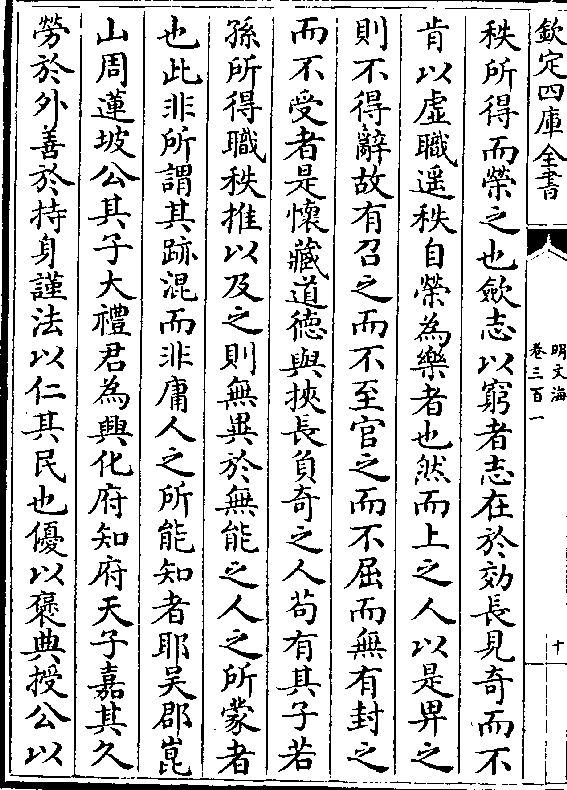 欽定四庫全書
明文海
卷三百一
十
秩所得而榮之也歛志以窮者志在於効長見奇而不
肯以虛職遥秩自榮為樂者也然而上之人以是畀之
則不得辭故有召之而不至官之而不屈而無有封之
而不受者是懷藏道德與挾長負奇之人苟有其子若
孫所得職秩推以及之則無異於無能之人之所蒙者
也此非所謂其跡混而非庸人之所能知者耶吴郡崑
山周蓮坡公其子大禮君為興化府知府天子嘉其久
勞於外善於持身謹法以仁其民也優以褒典授公以